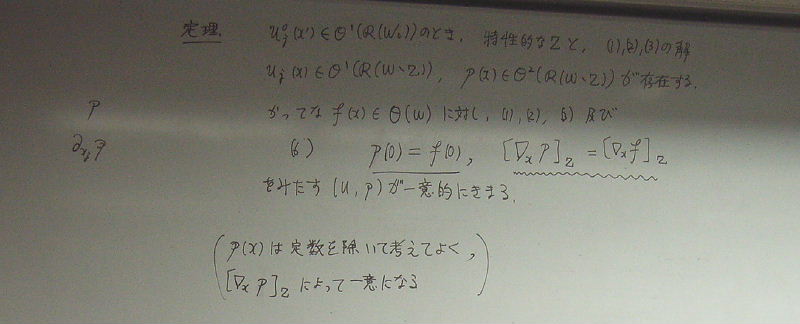 定理. u_j^0(x') ∈ Θ^1(R(W_0)) のとき, 特性的な Z と, (1),(2),(3)の解
u_j(x) ∈ Θ^1(R(W∖Z)), p(x) ∈ Θ^2(R(W∖Z)) が存在する.
p かってな f(x) ∈ Θ(W) に対し, (1), (2), (3) 及び
∂_{x_j} p (6) p(0) = f(0), [∇_x p]_Z = [∇_x f]_Z
をみたす (u, p) が一意的にきまる.
(p(x) は定数を除いて考えてよく,
[∇_x p]_Z によって一意になる)